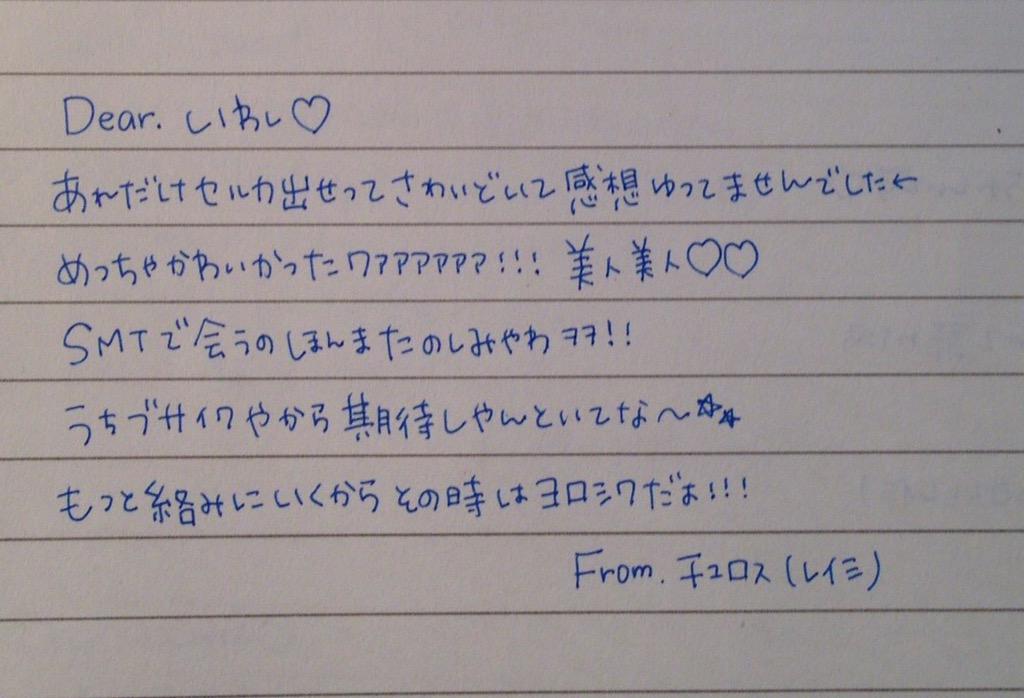 Dear. しいわし♡
あれだけセルカ出せってさわいどいて感想ゆってませんでした←
めっちゃかわいかったワァァァァァァ!!! 美人美人♡♡
SMTで会うのほんまたのしみやわヲヲ!!
うちブサイクやから期待しやんといてな〜☆☆
もっと絡みにいくからその時はヨロシクだょ!!!
From. チュロス(レイミ)